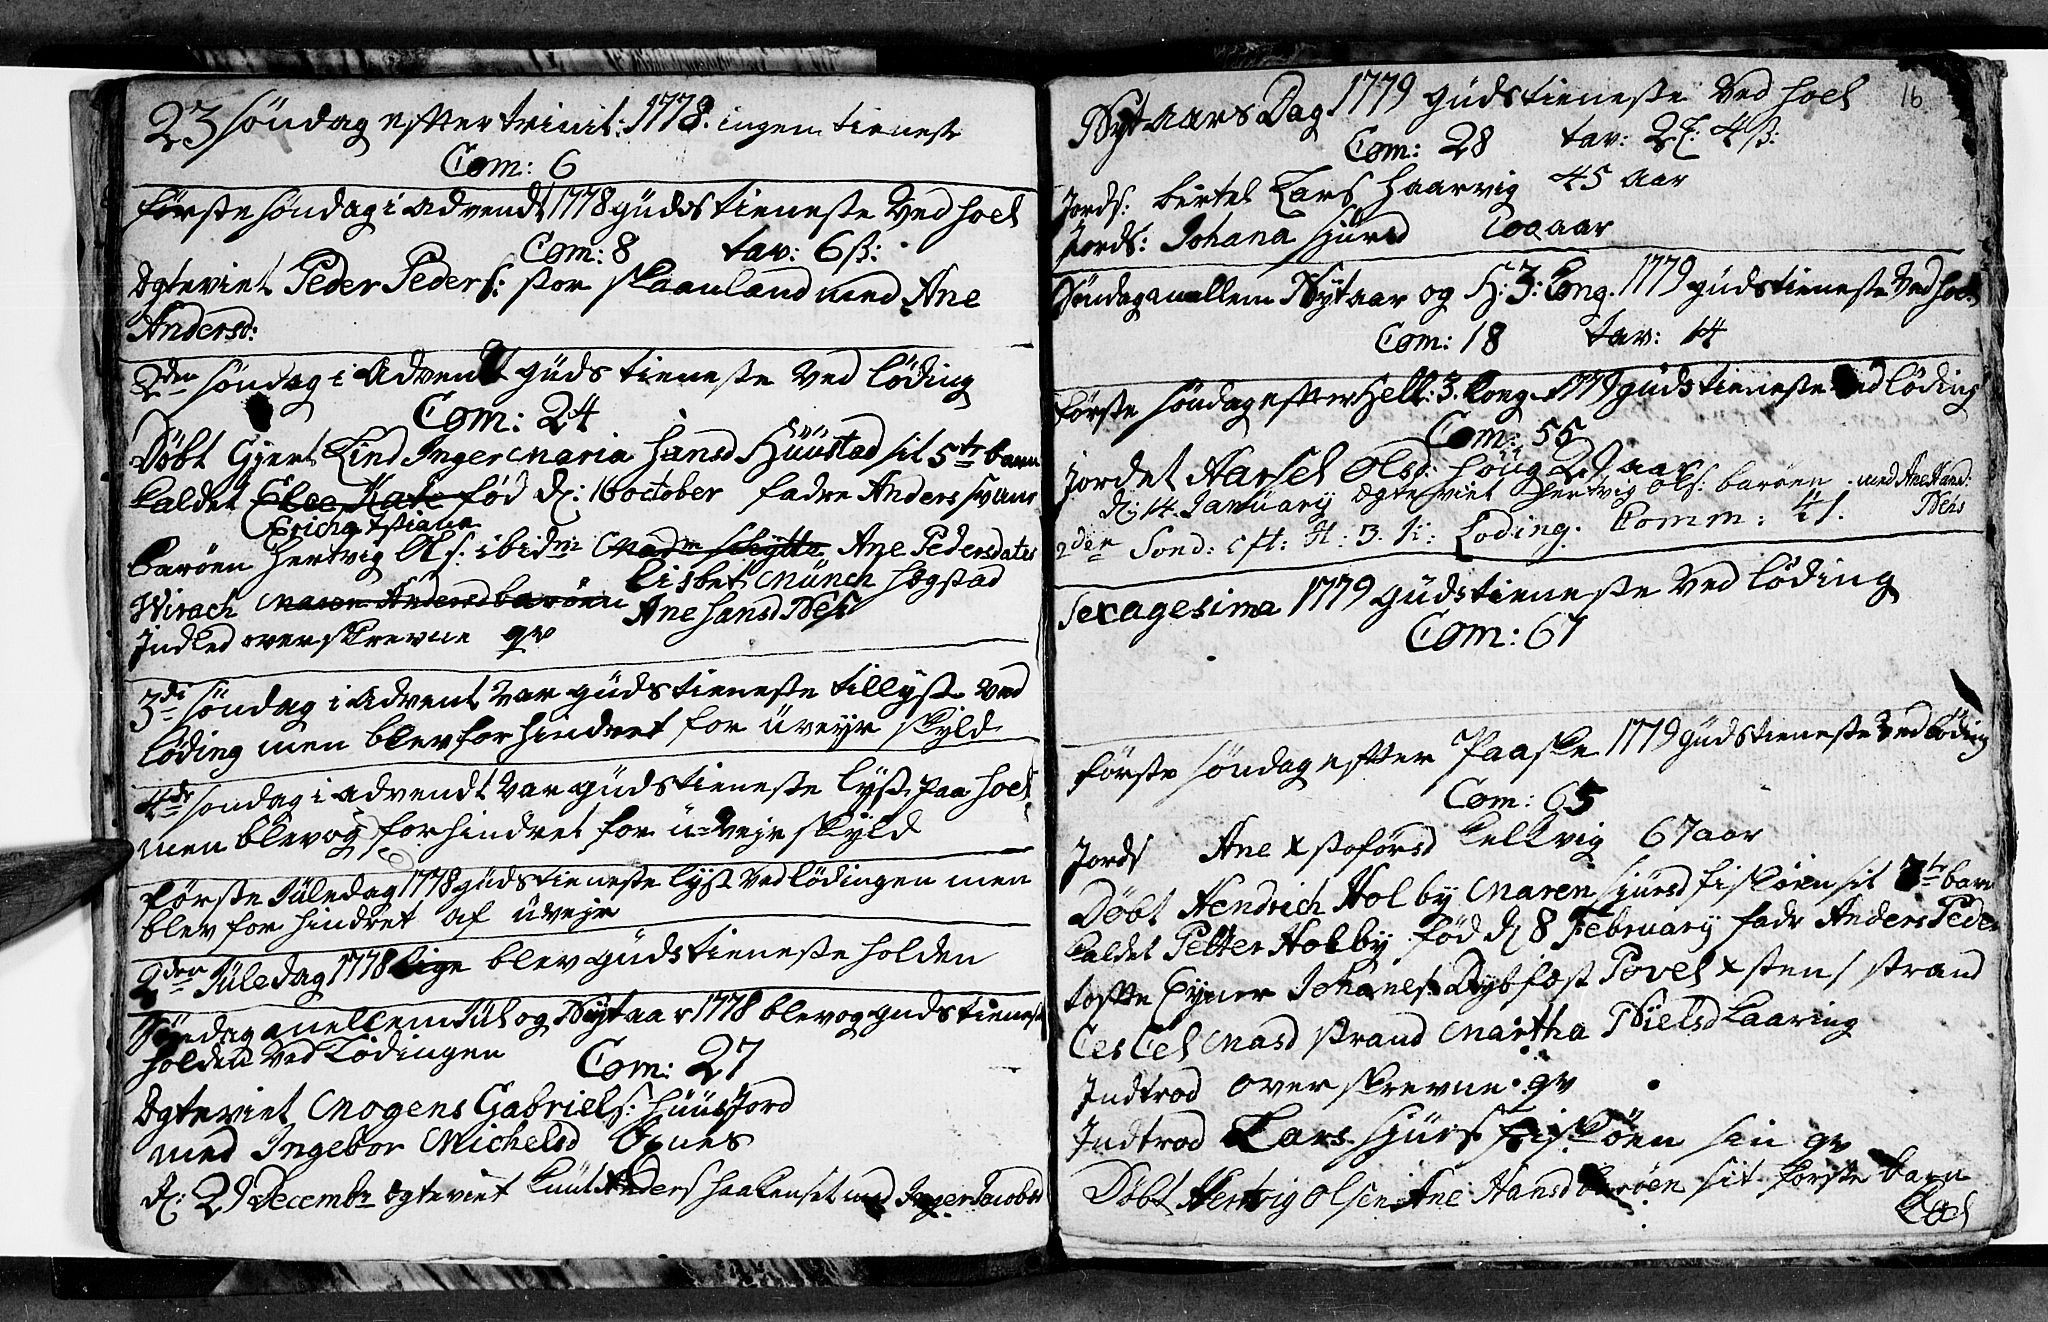 23 söndag effter trinit: 1778. ingen tieneste
Com: 6
förste söndag i advendt 1778 güdstieneste Ved hoel
Com: 8 tav: 6 ß:
Ægteviet Peder Peders: stor skaanland med Ane
Andersd:
2den söndag i Advent güdstieneste Ved löding
Com: 24
Döbt Gjert Lind Inger Maria Hansd Hüüstad sit 5te barn
kaldet Elee Kate föd d: 16 october fadre Anders svans
Erichα
Baröen Hertvig Ols: ibidm: Madm Schytte Ane Pedersdater
Wirach Maren Andersd baröen Lisbet Münch Høgstad
Indled overskrevne qv Ane Hansd Nes
3di söndag i advent var güdstieneste tillyst Ved
löding men blev forhindret for üveyr skyld
4de söndag i advendt var güdstieneste lyst paa hoel
men blev og forhindret for ü-vejr skyld
förste Jüledag 1778 güdstieneste lyst Ved lödingen men
blev forhindret af üvejr
2den Jüledag 1778 lige blev güdstieneste holden
Söndag mellem Jül og Nytaar 1778 blev og gudstieneste
holden Ved Lödingen Com: 27
Ægteviet Mogens Gabriels: Hüüsfjord
med Ingebor Michelsd
d: 29 Decembr ægteviet Knüt Anders med Inger Jacobsd
16
Nyt aars Dag 1779 güdstieneste Ved hoel
Com: 28 tav: 2 : 4 ß:
Jords: bertel Lars Haarvig 45 aar
Jords: Johana Sjürsd aar
Söndag mellem Nytaar og H: 3: Kong. 1779 güdstieneste Ved hoel
Com: 18 tav: 14
förste söndag effter Hell: 3. kong. 1779 güdstieneste Ved löding
Com: 55
Jordet Olsd: 29 aar
d: 14. January Ægteviet Hertvig Ols: Baröen med Ane Hansd:
2den Sönd: eft: H: 3. K: Loding. Comm: 41. Ness
Sexagesima 1779 güdstieneste Ved löding
Com: 67
förste söndag effter Paaske 1779 güdstieneste Ved löding
Com: 65
Jords Ane Xstofersd Kellvig 67 aar
Döbt Hendrich Holby Maren Sjürsd fisköen sit barn
kaldet Petter Holby föd d 8 February fadr Anders Peder
tofte Eyner Johanes: Dybfest Povel Xstens strand
Cecel Masd strand Märtha Nielsd Kaaring
Indtrod overskrevne qv
Indtrod Lars Sjürs: Fiskøen sin qv
Döbt Hertvig Olsen Ane Hansd baröen sit förste barn
Kal